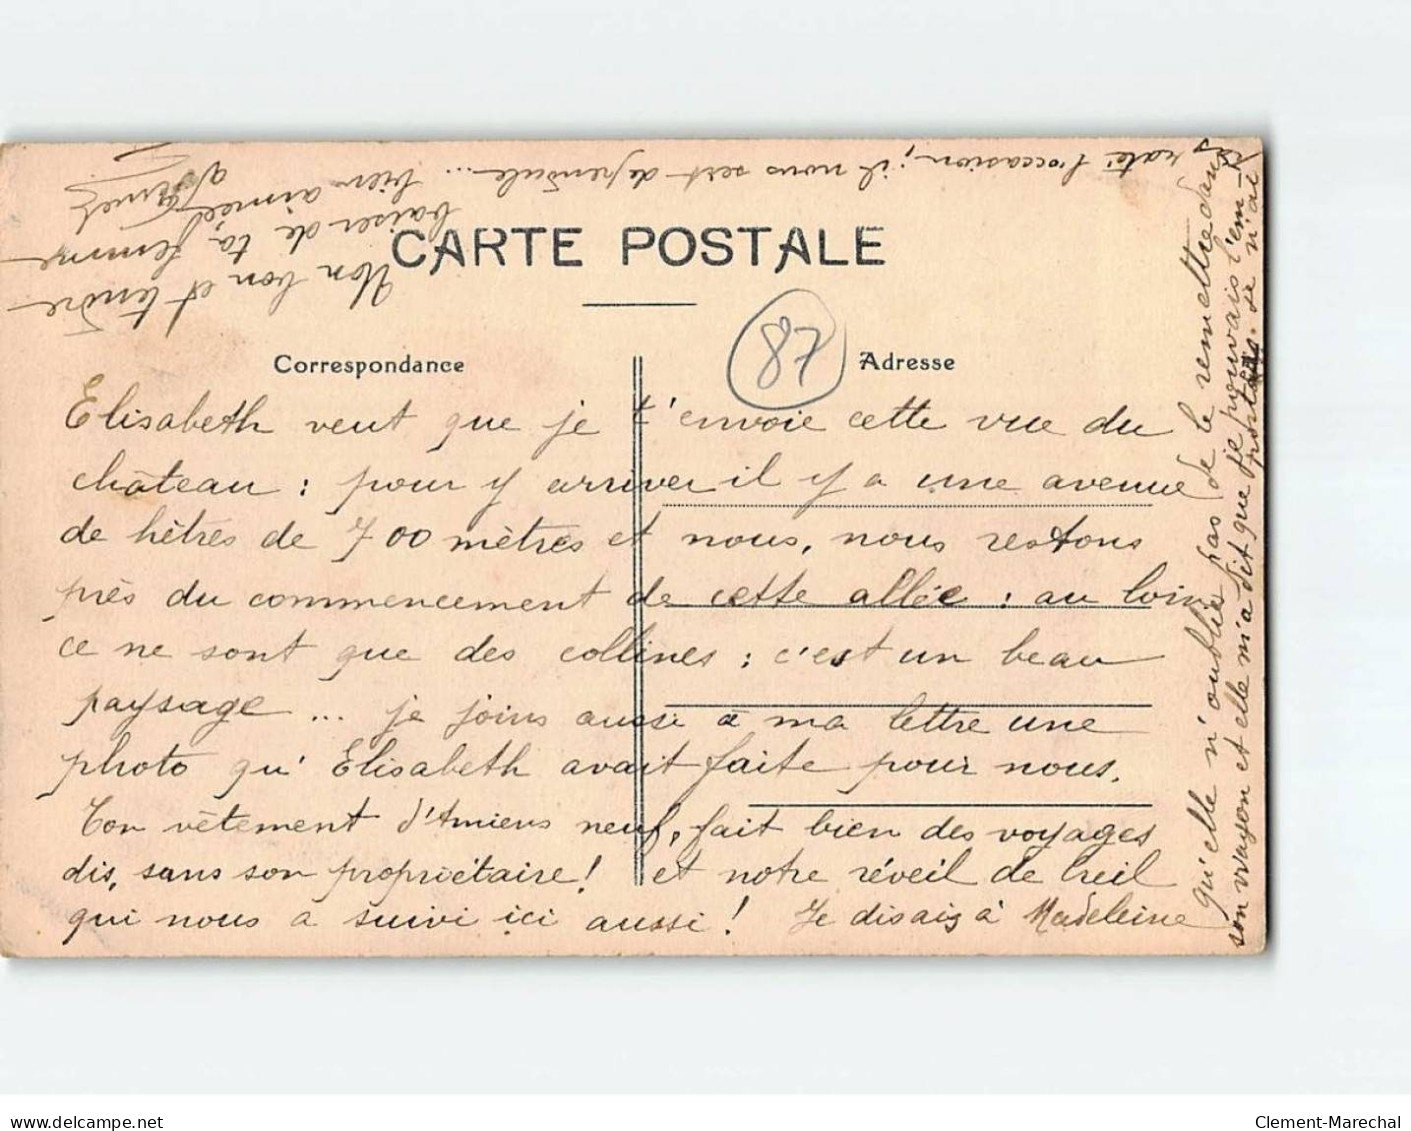 CARTE POSTALE
87
Correspondance
Adresse
Elisabeth veut que je t'envoie cette vue du
château : pour y arriver il y a une avenue
de hêtres de 700 mètres et nous, nous restons
près du commencement de cette allée : au loin
ce ne sont que des collines : c'est un beau
paysage ... je joins aussi à ma lettre une
photo qu'Elisabeth avait faite pour nous.
Ton vêtement d'Amiens neuf, fait bien des voyages
dis, sans son propriétaire ! et notre réveil de Creil
qui nous a suivi ici aussi ! Je disais à Madeleine
qu'elle n'oublie pas de le remettre dans
son wagon et elle m'a dit que je pouvais l'em-
porter. Je n'ai
pas raté l'occasion ; il nous sert de pendule ...
Un bon et tendre
baiser de ta femme
bien aimée
Clement-Marechal
www.delcampe.net